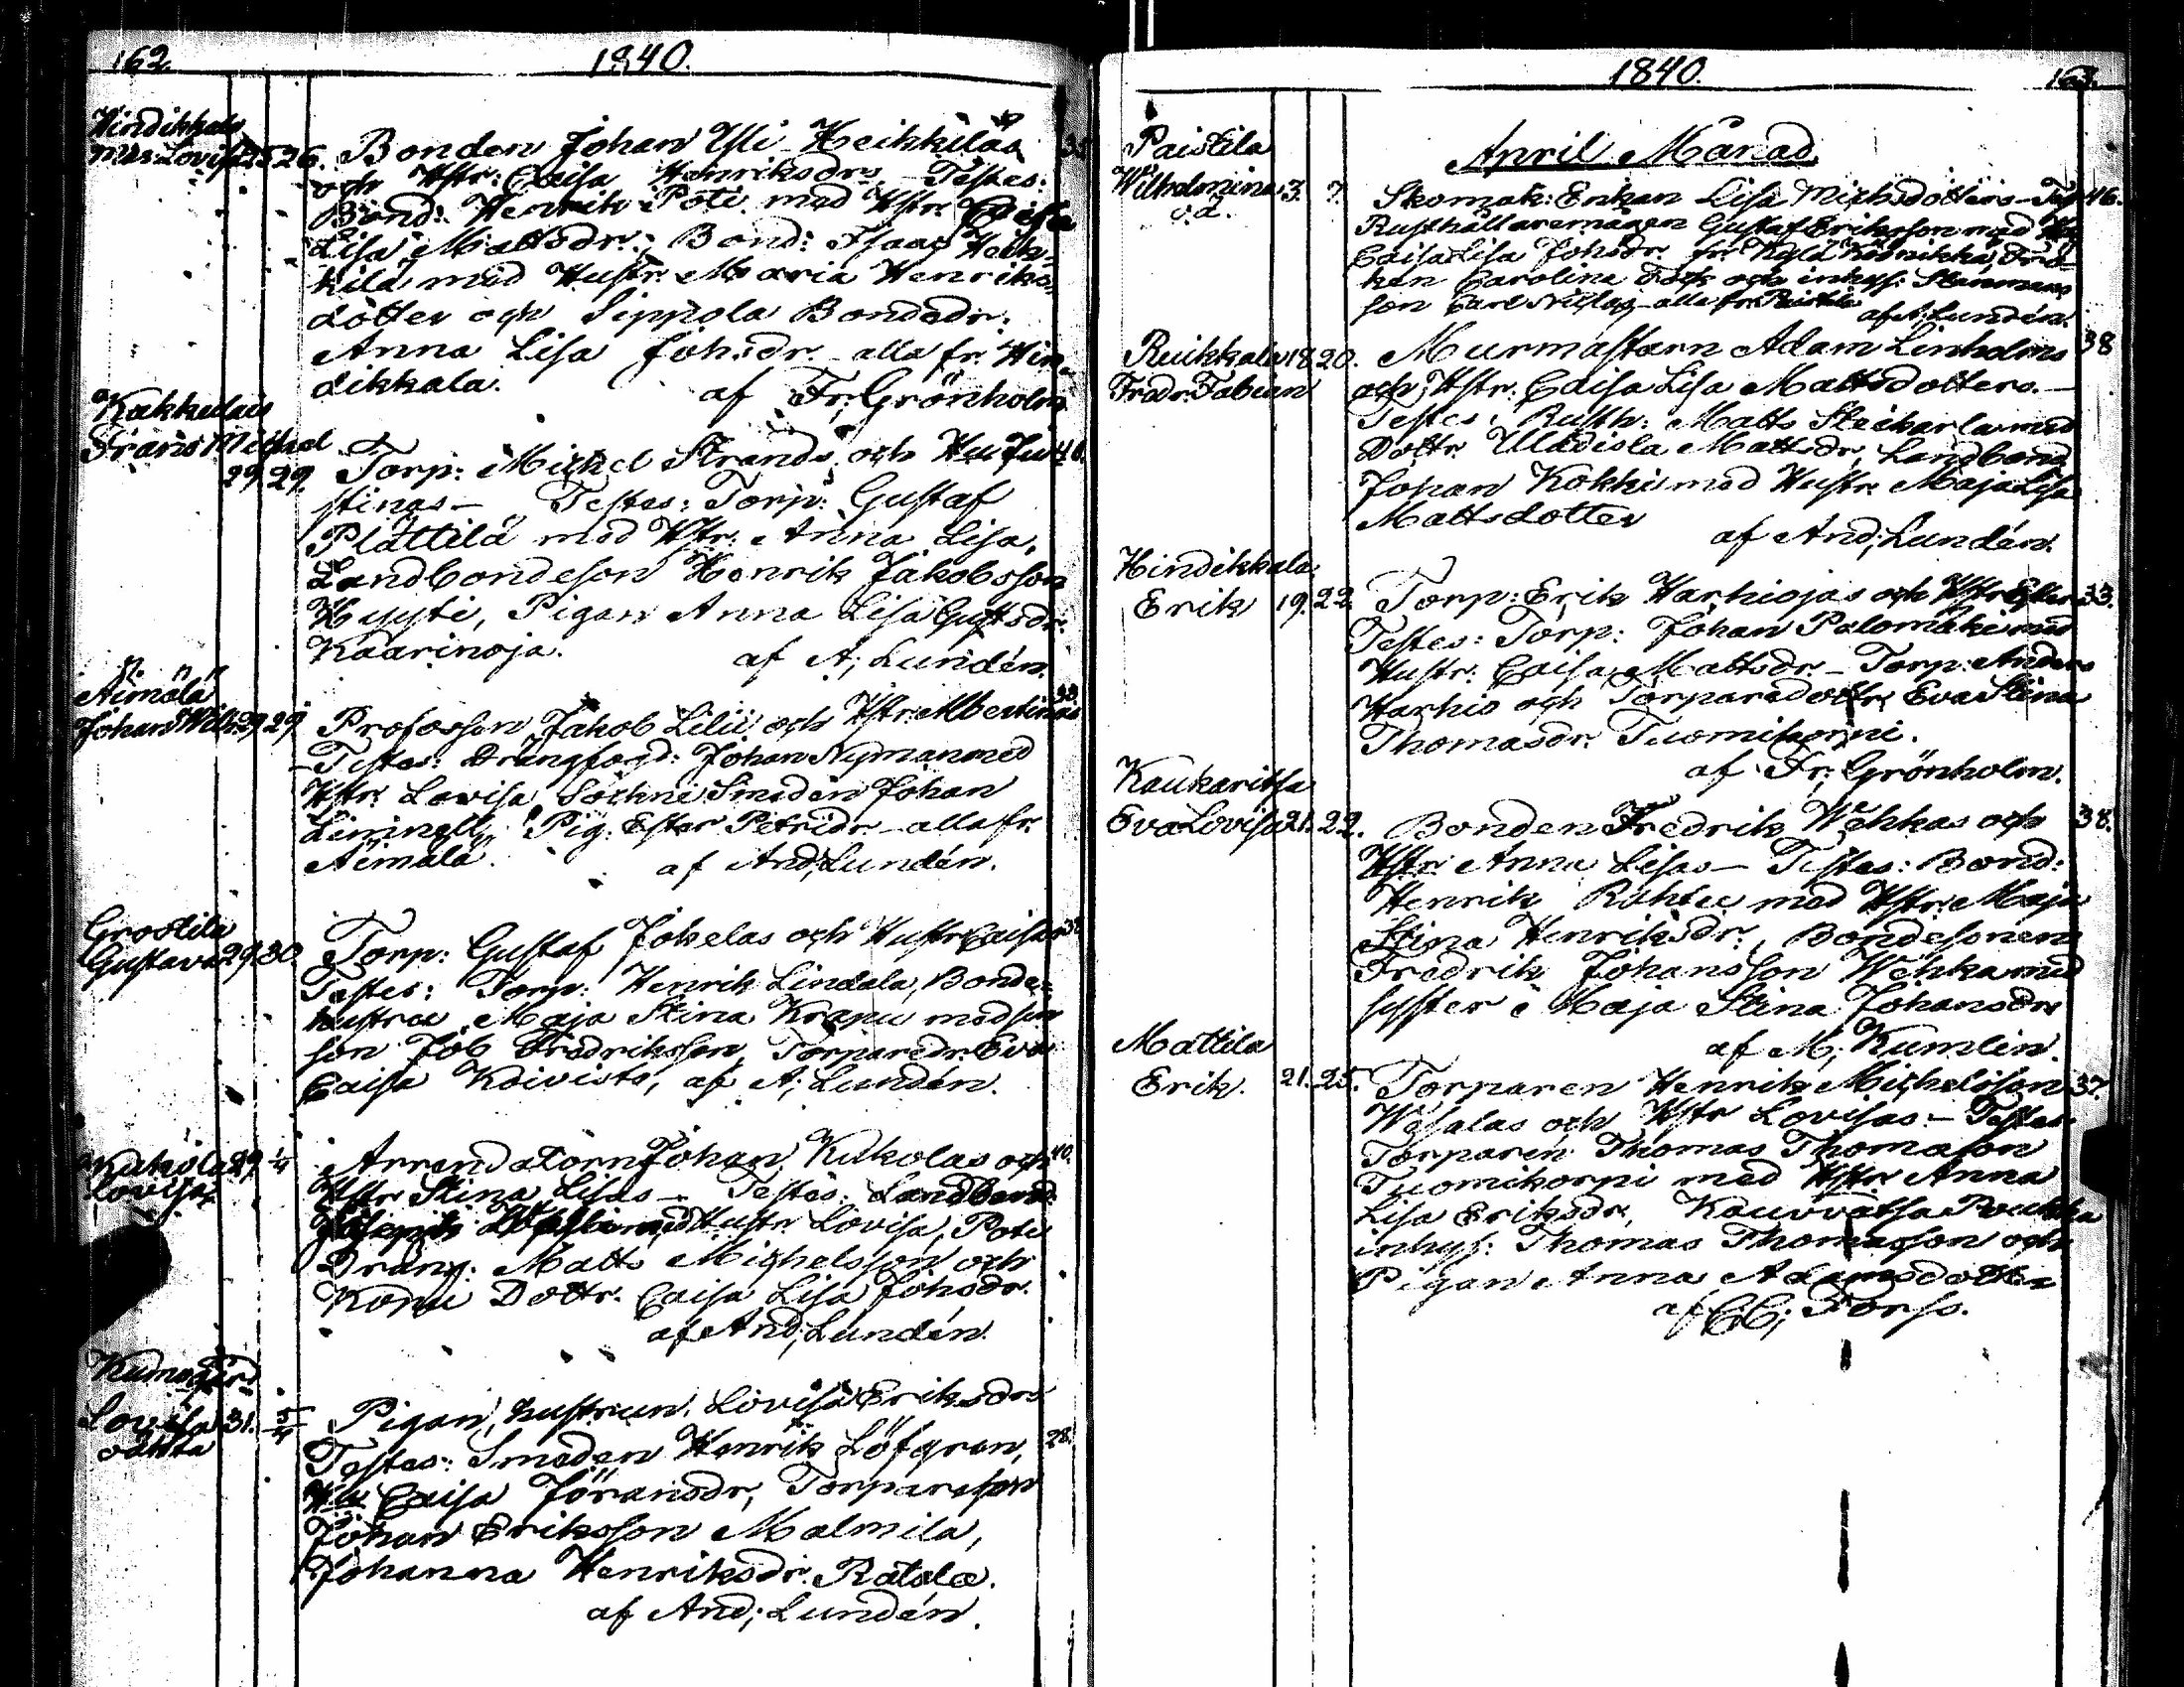 162.
1840.
Hindikkala
Mar: Lovisa 25 26. Bonden Johan Yli Heikkiläs
och Hstr: Caisa Henriksdrs - Testes:
Bond: Henrik Poti med Hstr.
Lisa Mattsdr.; Bond: Isaac Heik-
kilä med Hustr. Maria Henriks-
dotter och Sippola Bondedr:
Anna Lisa Johsdr. - alla fr. Hin-
dikkala.
af Fr; Grönholm
Kakkulais
Frans Michel
29. 29. Torp: Michel Strands och Hu Ju
stinas - Testes: Torp: Gustaf
Plättilä med Hstr. Anna Lisa,
Landbondeson Henrik Jakobsson
Hyyti, Pigan Anna Lisa Gustsdr.
Kaarinoja.
af A; Lundén.
Äimälä
Johan Wilh. 29 29 Profossen Jakob Lilii och Hstr. Albertinas 33.
Testes: Drängfogd: Johan Nyman med
Hstr. Lovisa Sockne Smeden Johan
Pig: Ester Petridr. - alla fr.
Äimälä.
af And; Lundén.
Grootila
Gustava 29. 30. Torp: Gustaf Jokelas och Hustr Caisas 38
Testes: Torp: Henrik Lindala, Bonde-
hustru Maja Stina Krapu med sin
son Job Fredriksson, Torparedr. Eva
Caisa Koivisto, af A; Lundén.
Kukola 29. 1/4 Arrendatorn Johan Kukolas och 40.
Lovisa Hstr Stina Lisas - Testes: Landbond:
med Hustr Lovisa, Poti
Dräng: Matts Michelsson och
Konu Dottr. Caisa Lisa Johsdr.
af And; Lundén.
Lovisa 31. 5/4 Pigan, hustrun Lovisa Eriksdrs
oäkta
Testes: Smeden Henrik Löfgren, 28.
Caisa Göransdr, Torpareson
Johan Eriksson Malmila,
Johanna Henriksdr. Ratala.
af And; Lundén.
1840.
163.
April Månad
Paistila
Wilhelmina 3. 7. Skomak: Enkan Lisa Michsdotters - Tes 46.
o.ä.
Rusthållaremågen Gustaf Eriksson med
Caisa Lisa Johsdr. fr. Kylä Frö-
ken Carolina och inhys:
son Carl Niclas - alla fr. Paistila
af A; Lundén.
Ruikkala 18 20. Murmästarn Adam Linholms 38
Fredr. Fabian och Hstr. Caisa Lisa Mattsdotters. -
Testes: Rusth: Matts Skikarla med
Dottr. Uladisla Mattsdr, Landbond
Johan Kokki med Hustr. Maja Lisa
Mattsdotter
af And; Lundén.
Hindikkala
Erik 19. 22 Torp: Erik Harhiojas och Hstr Esters 33.
Testes: Torp: Johan Palomäki med
Hustr. Caisa Mattsdr. - Torp: Anders
Harhio och Torparedottr. Eva Stina
Thomasdr. Tuomikorpi.
af Fr; Grönholm.
Kaukaritsa
Eva Lovisa 21. 22. Bonden Fredrik Wehkas och 38.
Hstr: Anna Lisas - Testes: Bond:
Henrik Rohtu med Hstr. Maja
Stina Henriksdr., Bondesonen
Fredrik Johansson Wehka med
syster Maja Stina Johansdr
af M; Kumlin.
Mattila
Erik. 21. 25. Torparen Henrik Michelsson 37.
Wesalas och Hstr Lovisas - Testes
Torparen Thomas Thomasson
Tuomikorpi med Hstr Anna
Lisa Eriksdr, Kauvvatsa
inhys: Thomas Thomasson och
Pigan Anna Adamsdotter
af C.C; Forss.